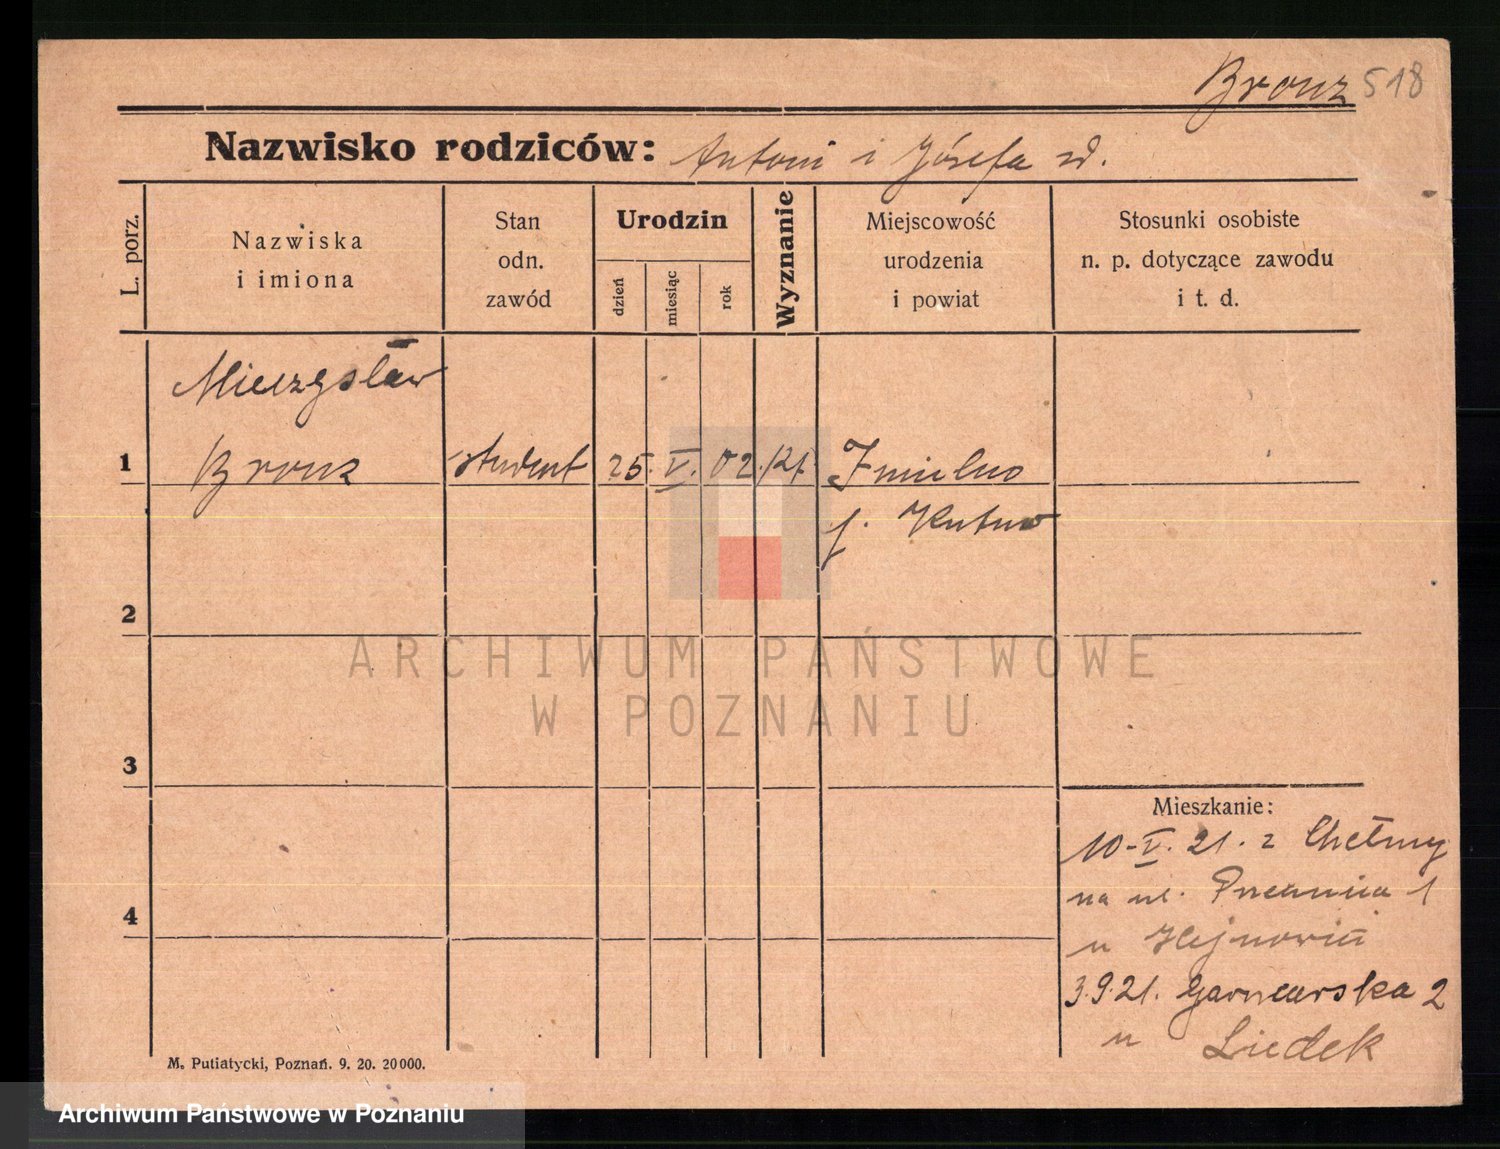 Bronz 518
Nazwisko rodziców: Antoni i Józefa zd.
L. porz.
Nazwiska
i imiona
Stan
odn.
zawód
Urodzin
dzień
miesiąc
rok
Wyznanie
Miejscowość
urodzenia
i powiat
Stosunki osobiste
n. p. dotyczące zawodu
i t. d.
Mieczysław
1 Bronz student 25. V. 02. kat.
p. Kutno
2
3
4
Mieszkanie:
10-V. 21. z Chełmży
na ul. 1
u
3.9.21. Garncarska 2
u Liedek
M. Putiatycki, Poznań. 9. 20. 20000.
ARCHIWUM PAŃSTWOWE
W POZNANIU
Archiwum Państwowe w Poznaniu